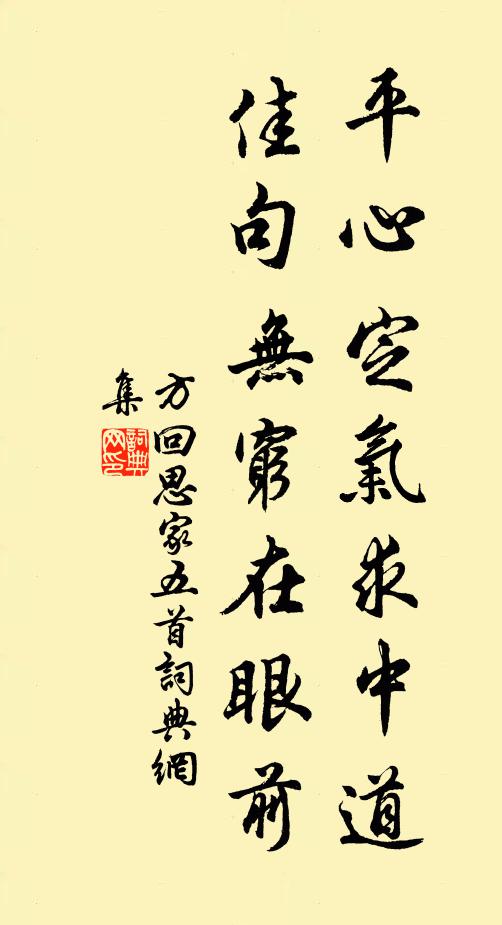 平心定氣求中道
佳句無窮在眼前
方回思家五首詞典網
集
詞典
网印